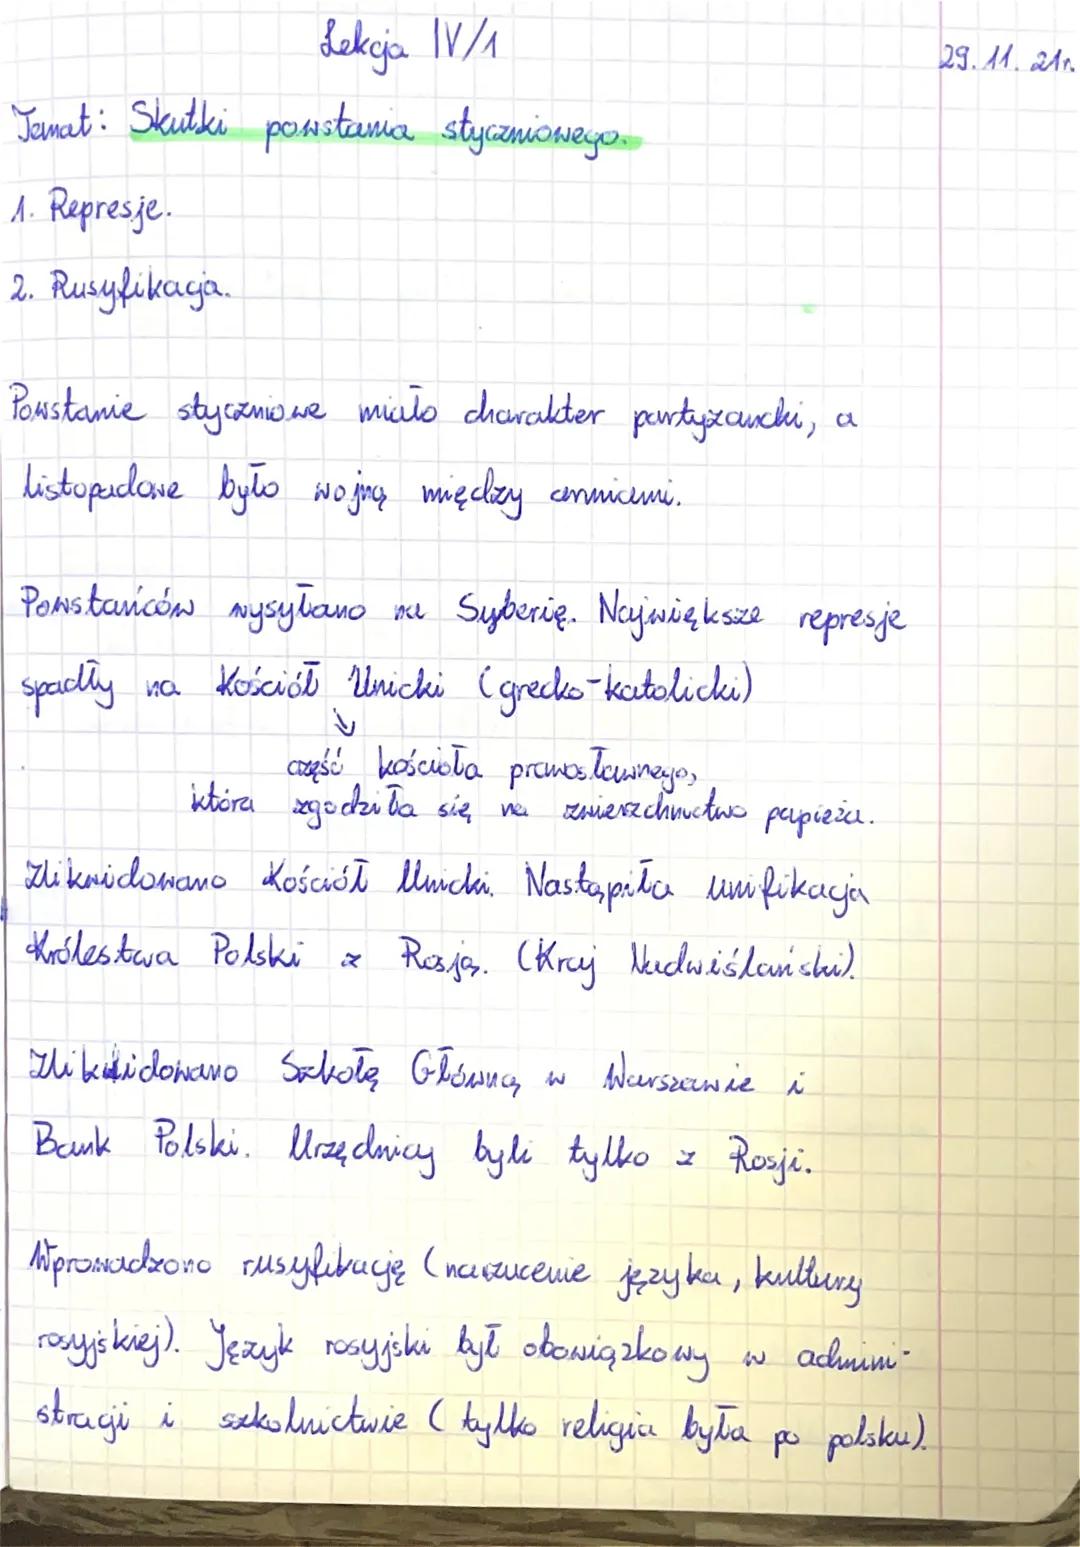 Lekcja IV/1
29.11.21r.
Temat: Skutki powstania styczniowego.
1. Represje.
2. Rusyfikacja.
Powstanie styczniowe miało charakter partyzancki, a
listopadowe było wojną między armiami.
Powstańców wysyłano na Syberię. Największe represje
spadły na Kościół Unicki (grecko-katolicki)
↓
część kościoła prawosławnego,
która zgodziła się na zwierzchnictwo papieża.
Zlikwidowano Kościół Unicki. Nastąpiła unifikacja
Królestwa Polski z Rosją. (Kraj Nadwiślański).
Zlikwidowano Szkołę Główną w Warszawie i
Bank Polski. Urzędnicy byli tylko z Rosji.
Wprowadzono rusyfikację (narzucenie języka, kultury
rosyjskiej). Język rosyjski był obowiązkowy w admini-
stracji i szkolnictwie (tylko religia była po polsku).